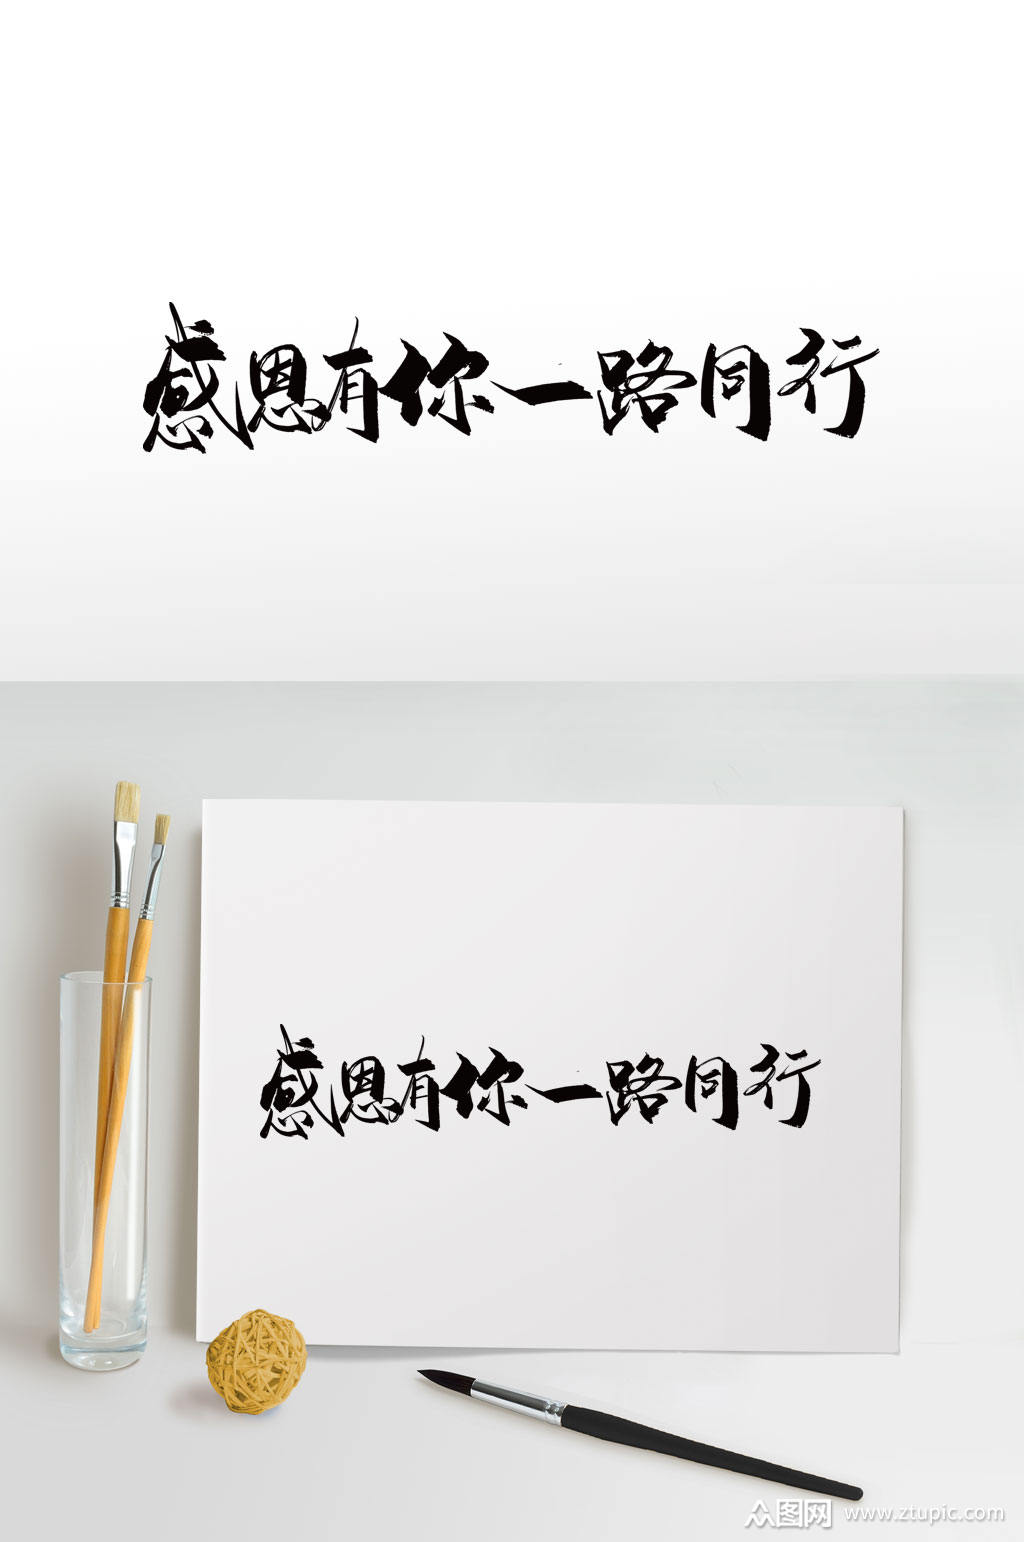 感恩有你一路同行
感恩有你一路同行
众图网 www.ztupic.com